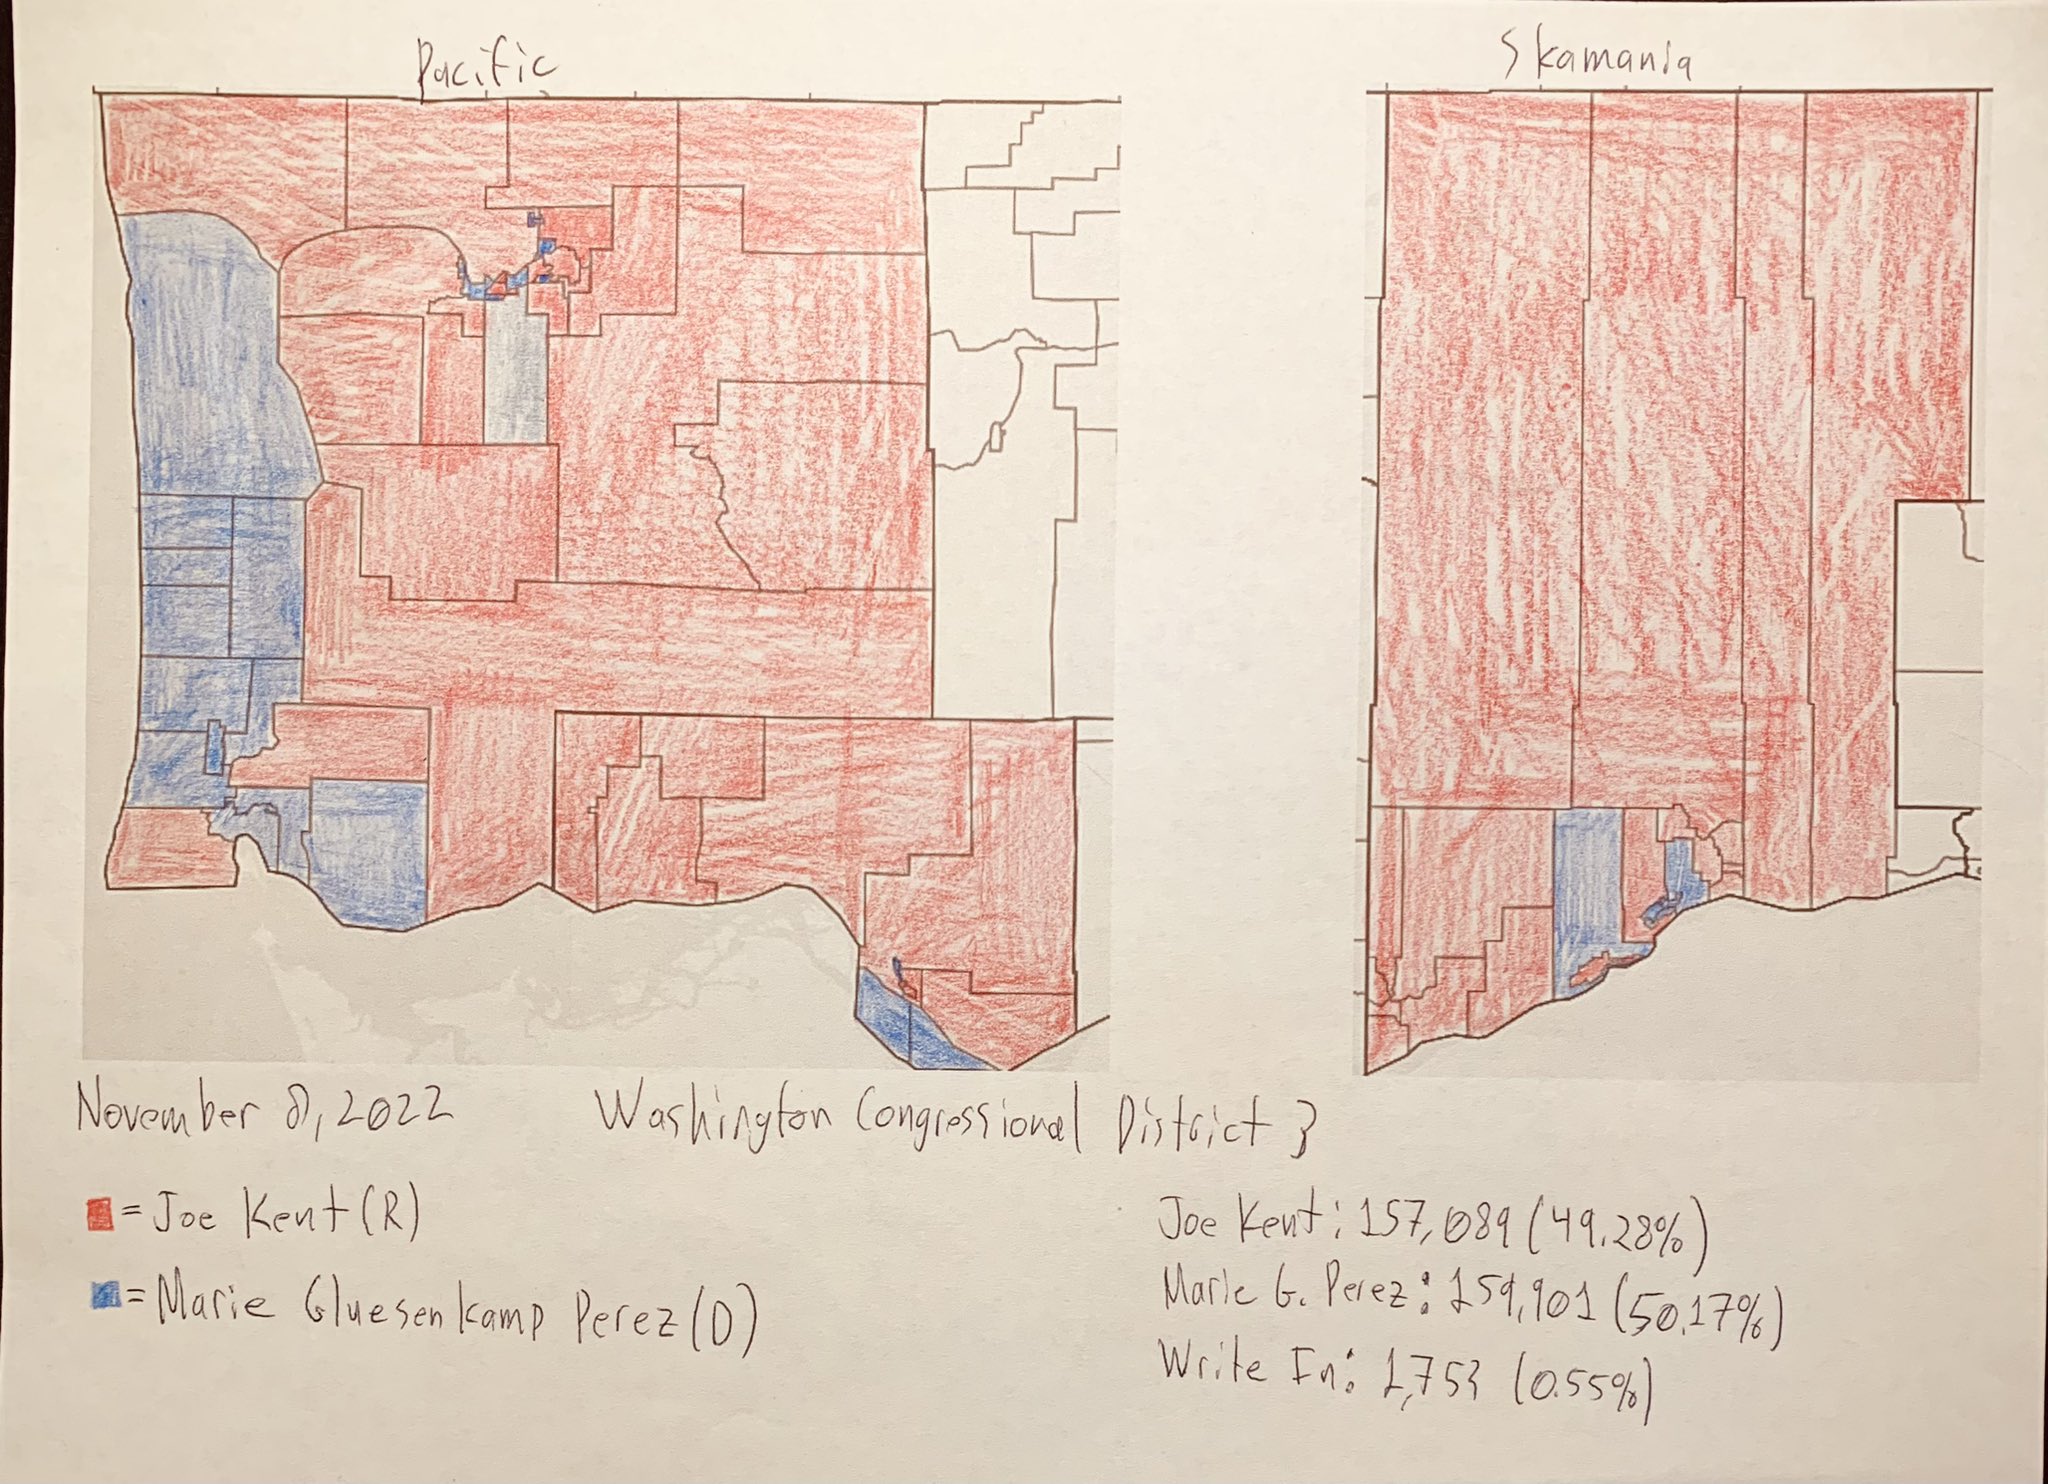 Pacific
Skamania
November 8, 2022
Washington Congressional District 3
= Joe Kent (R)
= Marie Gluesenkamp Perez (D)
Joe Kent: 157,089 (49.28%)
Marie G. Perez: 159,901 (50.17%)
Write In: 1,753 (0.55%)